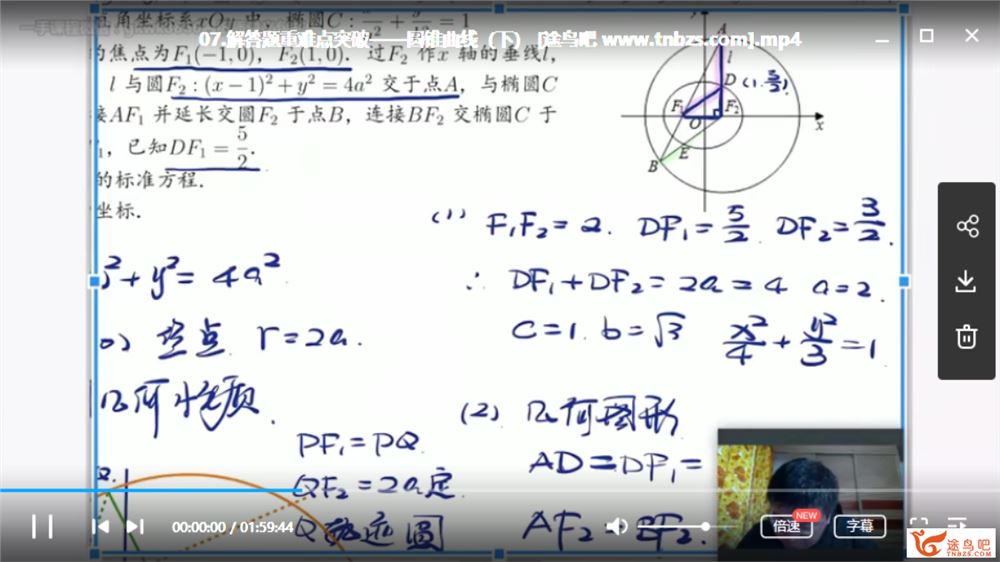 07.解答题重难点突破——圆锥曲线（下）【途鸟吧 www.tnbzs.com].mp4
角坐标系xOy 中，椭圆C：
= 1
的焦点为F₁(−1, 0)，F₂(1, 0)．过F₂ 作x 轴的垂线l，
l 与圆F₂ : (x − 1)² + y² = 4a² 交于点A，与椭圆C
接AF₁ 并延长交圆F₂ 于点B，连接BF₂ 交椭圆C 于
已知DF₁ = 5/2．
的标准方程．
坐标．
A
l
D
(1, 3/2)
F₁
F₂
O
x
B
E
(1) F₁F₂ = 2. DF₁ = 5/2. DF₂ = 3/2.
∴ DF₁ + DF₂ = 2a = 4 a = 2.
c = 1. b = √3 x²/4 + y²/3 = 1
² + y² = 4a²
r = 2a.
几何性质.
PF₁ = PQ
QF₂ = 2a 定
Q 轨迹圆
(2) 几何图形
AD = DF₁ =
AF₂ = BF₂.
Q.
00:00:00 / 01:59:44
倍速
NEW
字幕
途鸟吧
TNBZS.COM